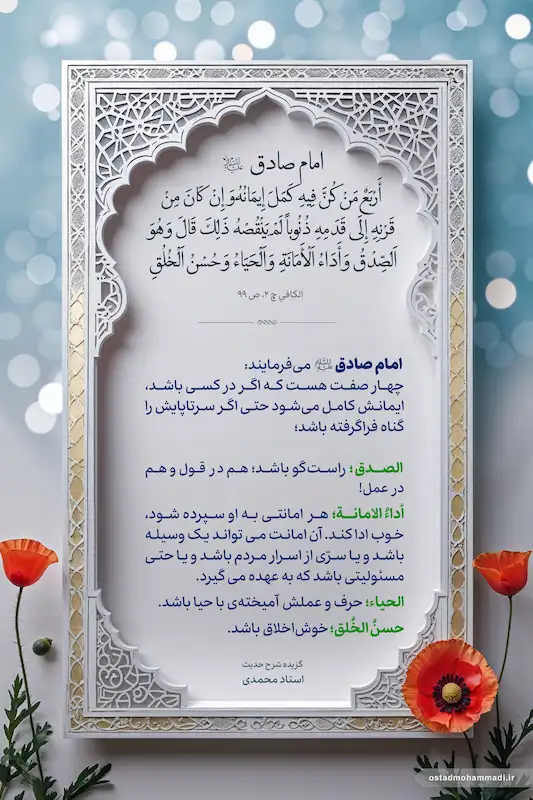 امام صادق علیه‌السلام
أَرْبَعٌ مَنْ كُنَّ فِيهِ كَمَلَ إِيمَانُهُ وَإِنْ كَانَ مِنْ
قَرْنِهِ إِلَى قَدَمِهِ ذُنُوباً لَمْ يَنْقُصْهُ ذَلِكَ قَالَ وَهُوَ
اَلصِّدْقُ وَأَدَاءُ اَلْأَمَانَةِ وَاَلْحَيَاءُ وَحُسْنُ اَلْخُلُقِ
الکافي ج ۲، ص ۹۹
امام صادق علیه‌السلام می‌فرمایند:
چهار صفت هست که اگر در کسی باشد،
ایمانش کامل می‌شود حتی اگر سرتاپایش را
گناه فراگرفته باشد؛
الصدق؛ راست‌گو باشد؛ هم در قول و هم
در عمل!
أداءُ الامانة؛ هر امانتی به او سپرده شود،
خوب ادا کند. آن امانت می تواند یک وسیله
باشد و یا سرّی از اسرار مردم باشد و یا حتی
مسئولیتی باشد که به عهده می گیرد.
الحیاء؛ حرف و عملش آمیخته‌ی با حیا باشد.
حسنُ الخُلق؛ خوش‌اخلاق باشد.
گزیده شرح حدیث
استاد محمدی
ostadmohammadi.ir